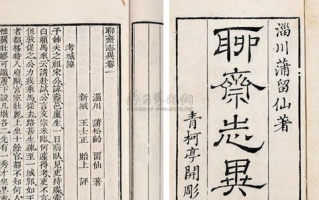 淄川蒲留仙著
聊齋志異
青柯亭開彫
聊齋志異卷一
淄川 蒲松齡 留仙 著
新城 王士正 貽上 評
考城隍
予姊夫之祖宋公諱燾邑廩生一日病臥見吏持牒
白顛馬來云請赴試公言文宗未臨何遽得考吏不言
但敦促之公力疾乘馬從去路甚生疏至一城郭如王
者都移時入府廨宮室壯麗上坐十餘官都不知何人
惟關壯繆可識簷下設几墩各二先有一秀才坐其末